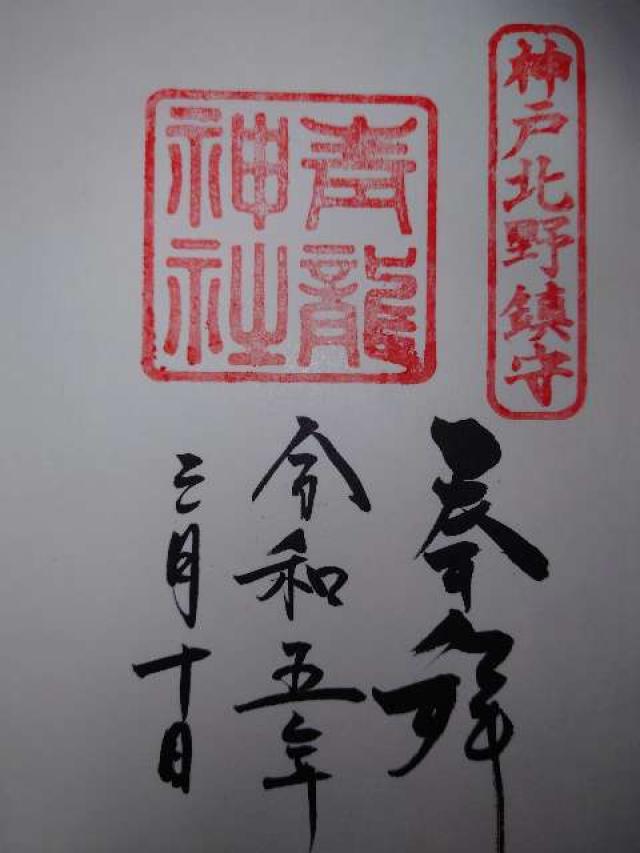 神戸北野鎮守
青龍
神社
奉拝
令和五年
三月十日